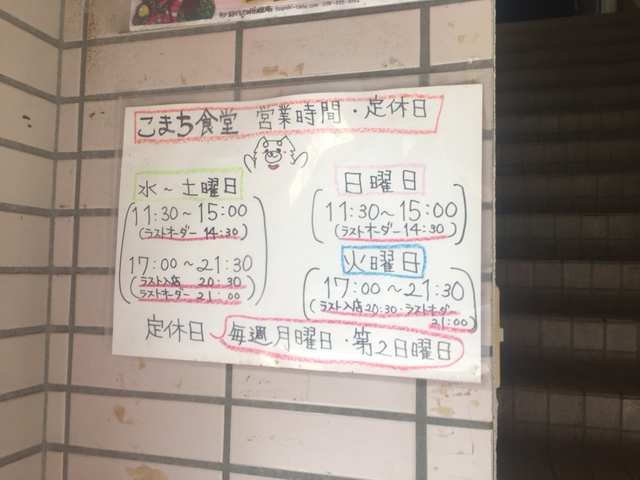 こまち食堂 営業時間・定休日
水～土曜日
11:30～15:00
(ラストオーダー 14:30)
17:00～21:30
(ラスト入店 20:30
ラストオーダー 21:00)
日曜日
11:30～15:00
(ラストオーダー 14:30)
火曜日
17:00～21:30
(ラスト入店 20:30・ラストオーダー
21:00)
定休日 毎週月曜日・第2日曜日